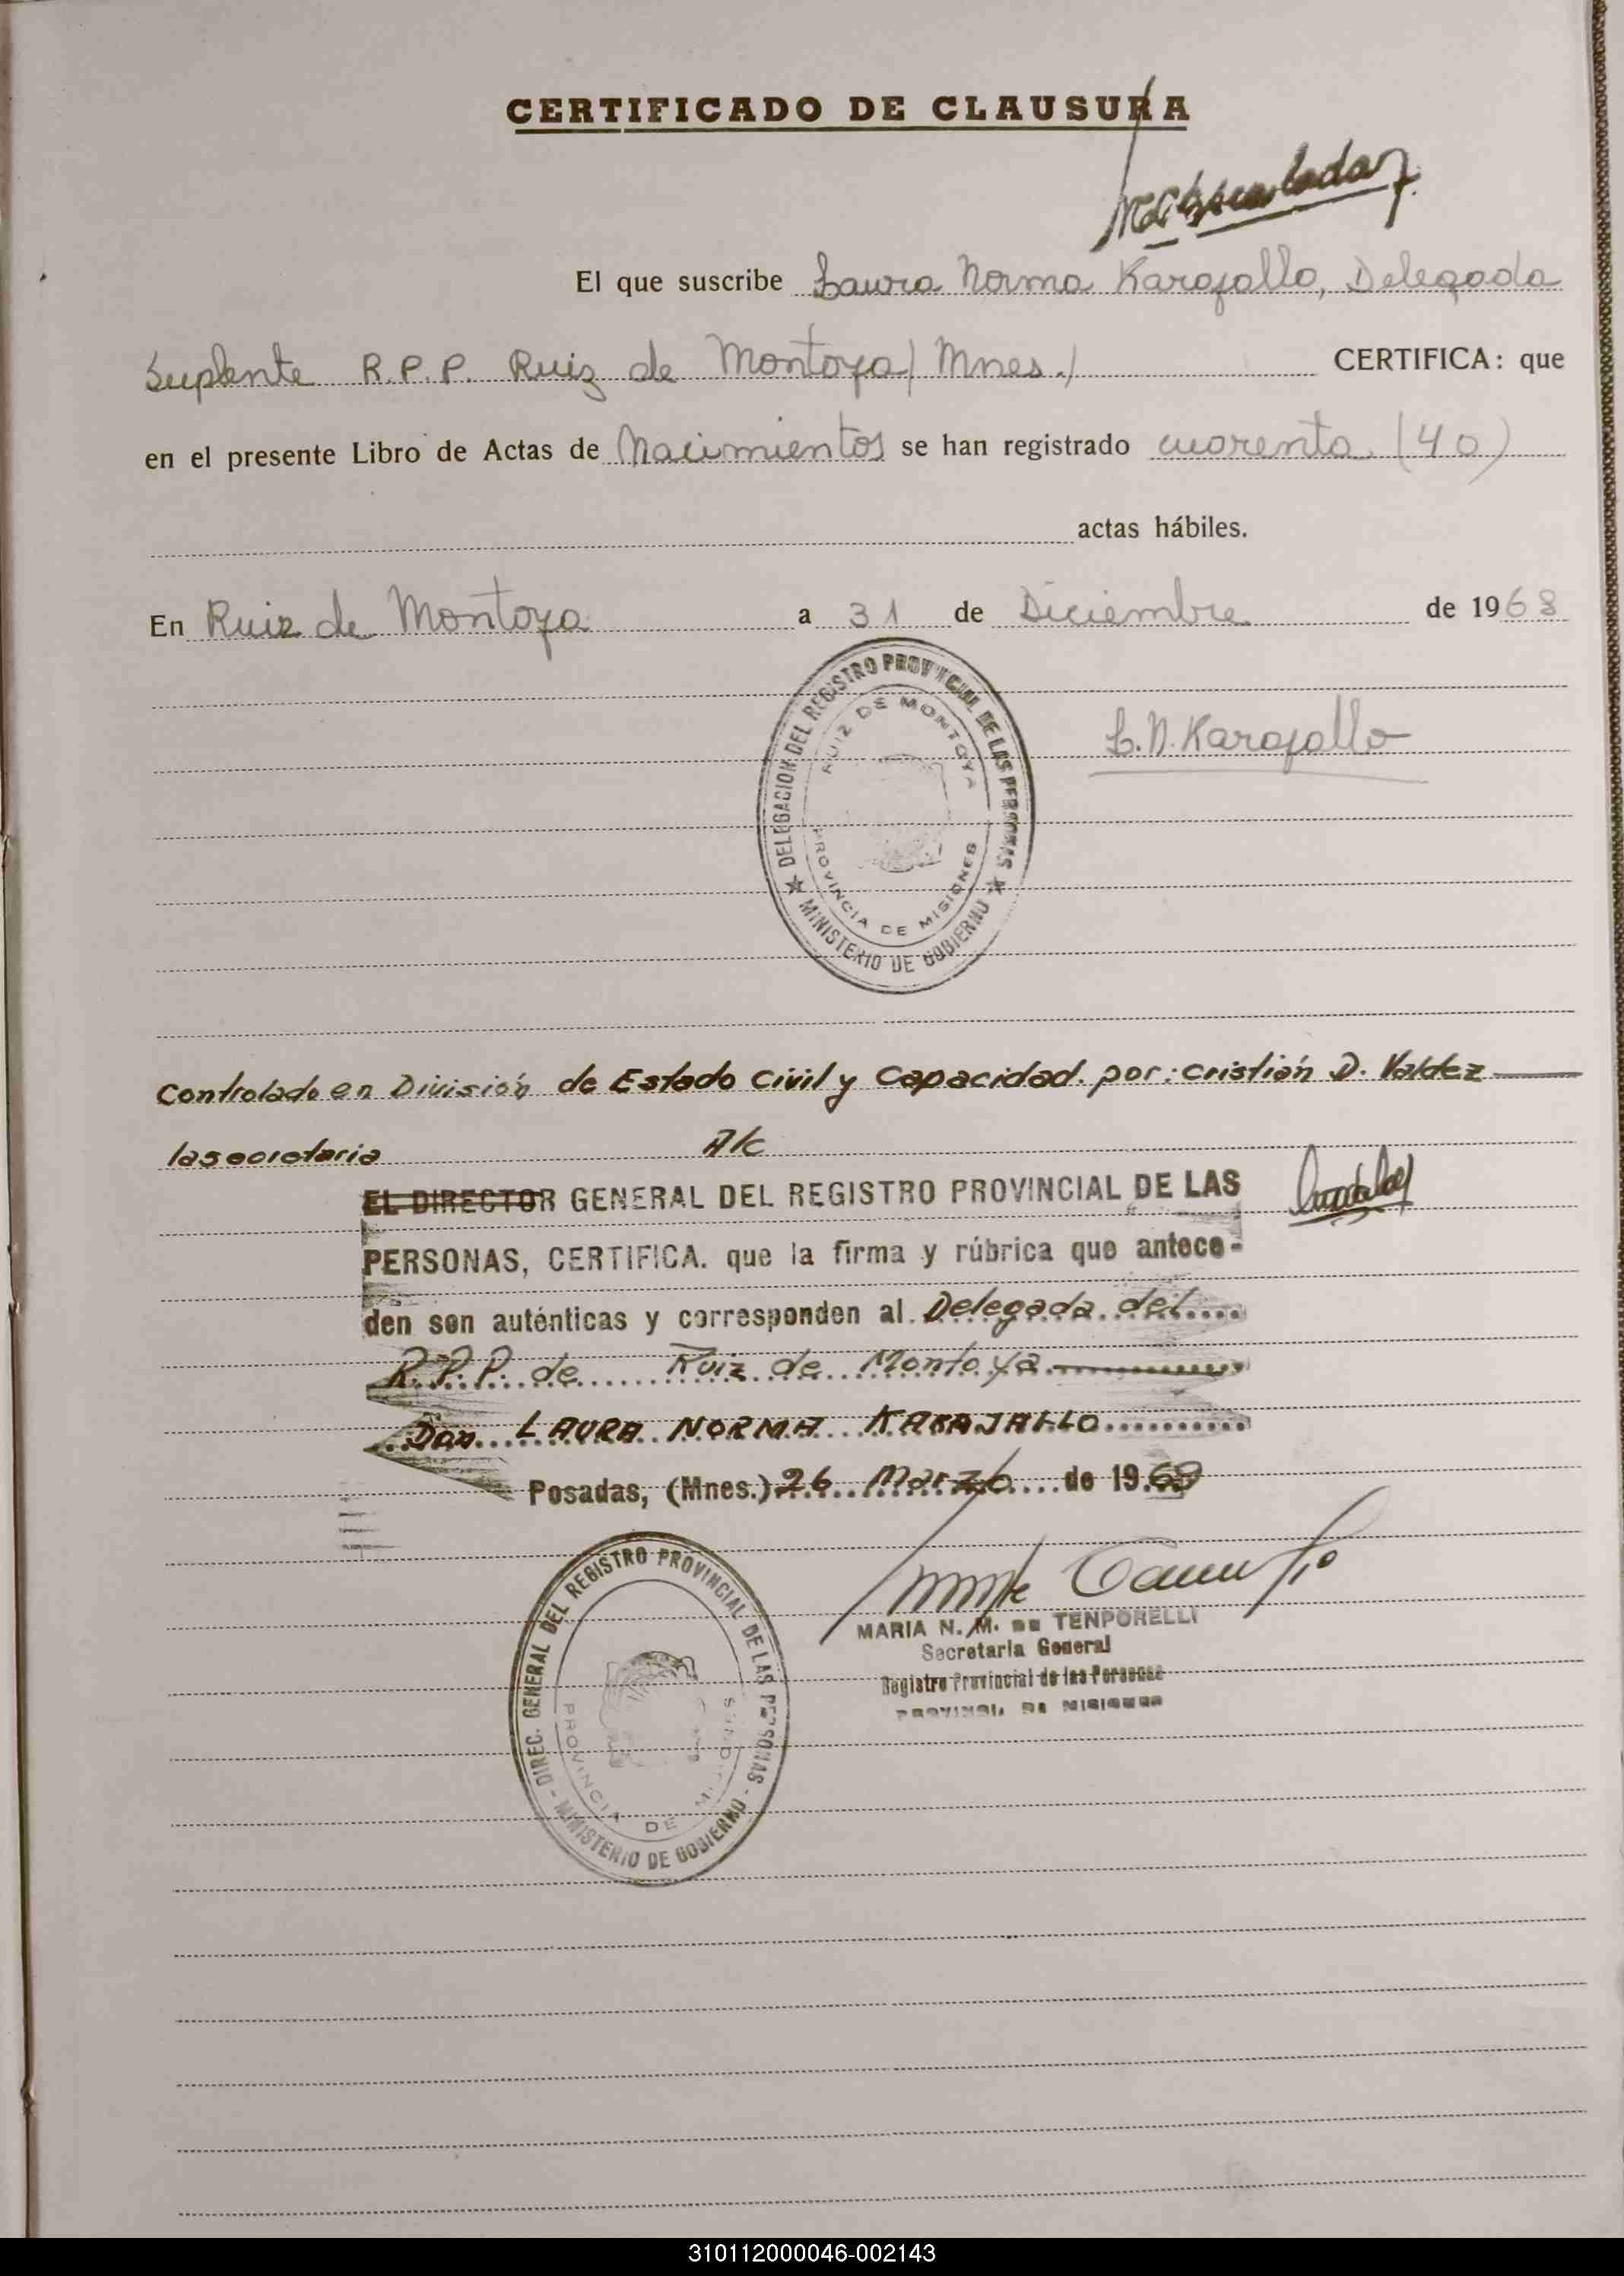 CERTIFICADO DE CLAUSURA
El que suscribe Laura Norma Karajallo, Delegada
Suplente R.P.P. Ruiz de Montoya (Mnes.) CERTIFICA: que
en el presente Libro de Actas de Nacimientos se han registrado cuarenta (40)
actas hábiles.
En Ruiz de Montoya a 31 de Diciembre de 1968
DELEGACION DEL REGISTRO PROVINCIAL DE LAS PERSONAS
RUIZ DE MONTOYA
PROVINCIA DE MISIONES
★ MINISTERIO DE GOBIERNO ★
L.N. Karajallo
Controlado en División de Estado Civil y Capacidad. por: Cristián D. Valdez
la secretaria A/c
EL DIRECTOR GENERAL DEL REGISTRO PROVINCIAL DE LAS
PERSONAS, CERTIFICA. que la firma y rúbrica que antece-
den son auténticas y corresponden al Delegada del
R.P.P. de Ruiz de Montoya
Don LAURA NORMA KARAJALLO
Posadas, (Mnes.) 26 Marzo de 1969
MARIA N. M. DE TENPORELLI
Secretaria General
Registro Provincial de las Personas
DIREC. GENERAL DEL REGISTRO PROVINCIAL DE LAS PERSONAS - MINISTERIO DE GOBIERNO -
PROVINCIA DE
310112000046-002143